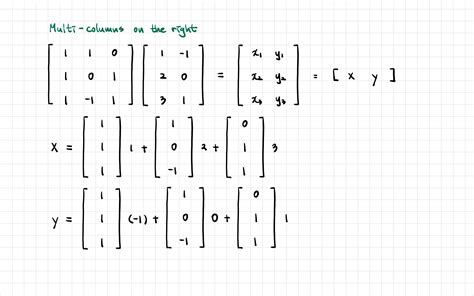 Multi-columns on the right
[1 1 0; 1 0 1; 1 -1 1] [1 -1; 2 0; 3 1] = [x₁ y₁; x₂ y₂; x₃ y₃] = [ x y ]
x = [1; 1; 1] 1 + [1; 0; -1] 2 + [0; 1; 1] 3
y = [1; 1; 1] (-1) + [1; 0; -1] 0 + [0; 1; 1] 1